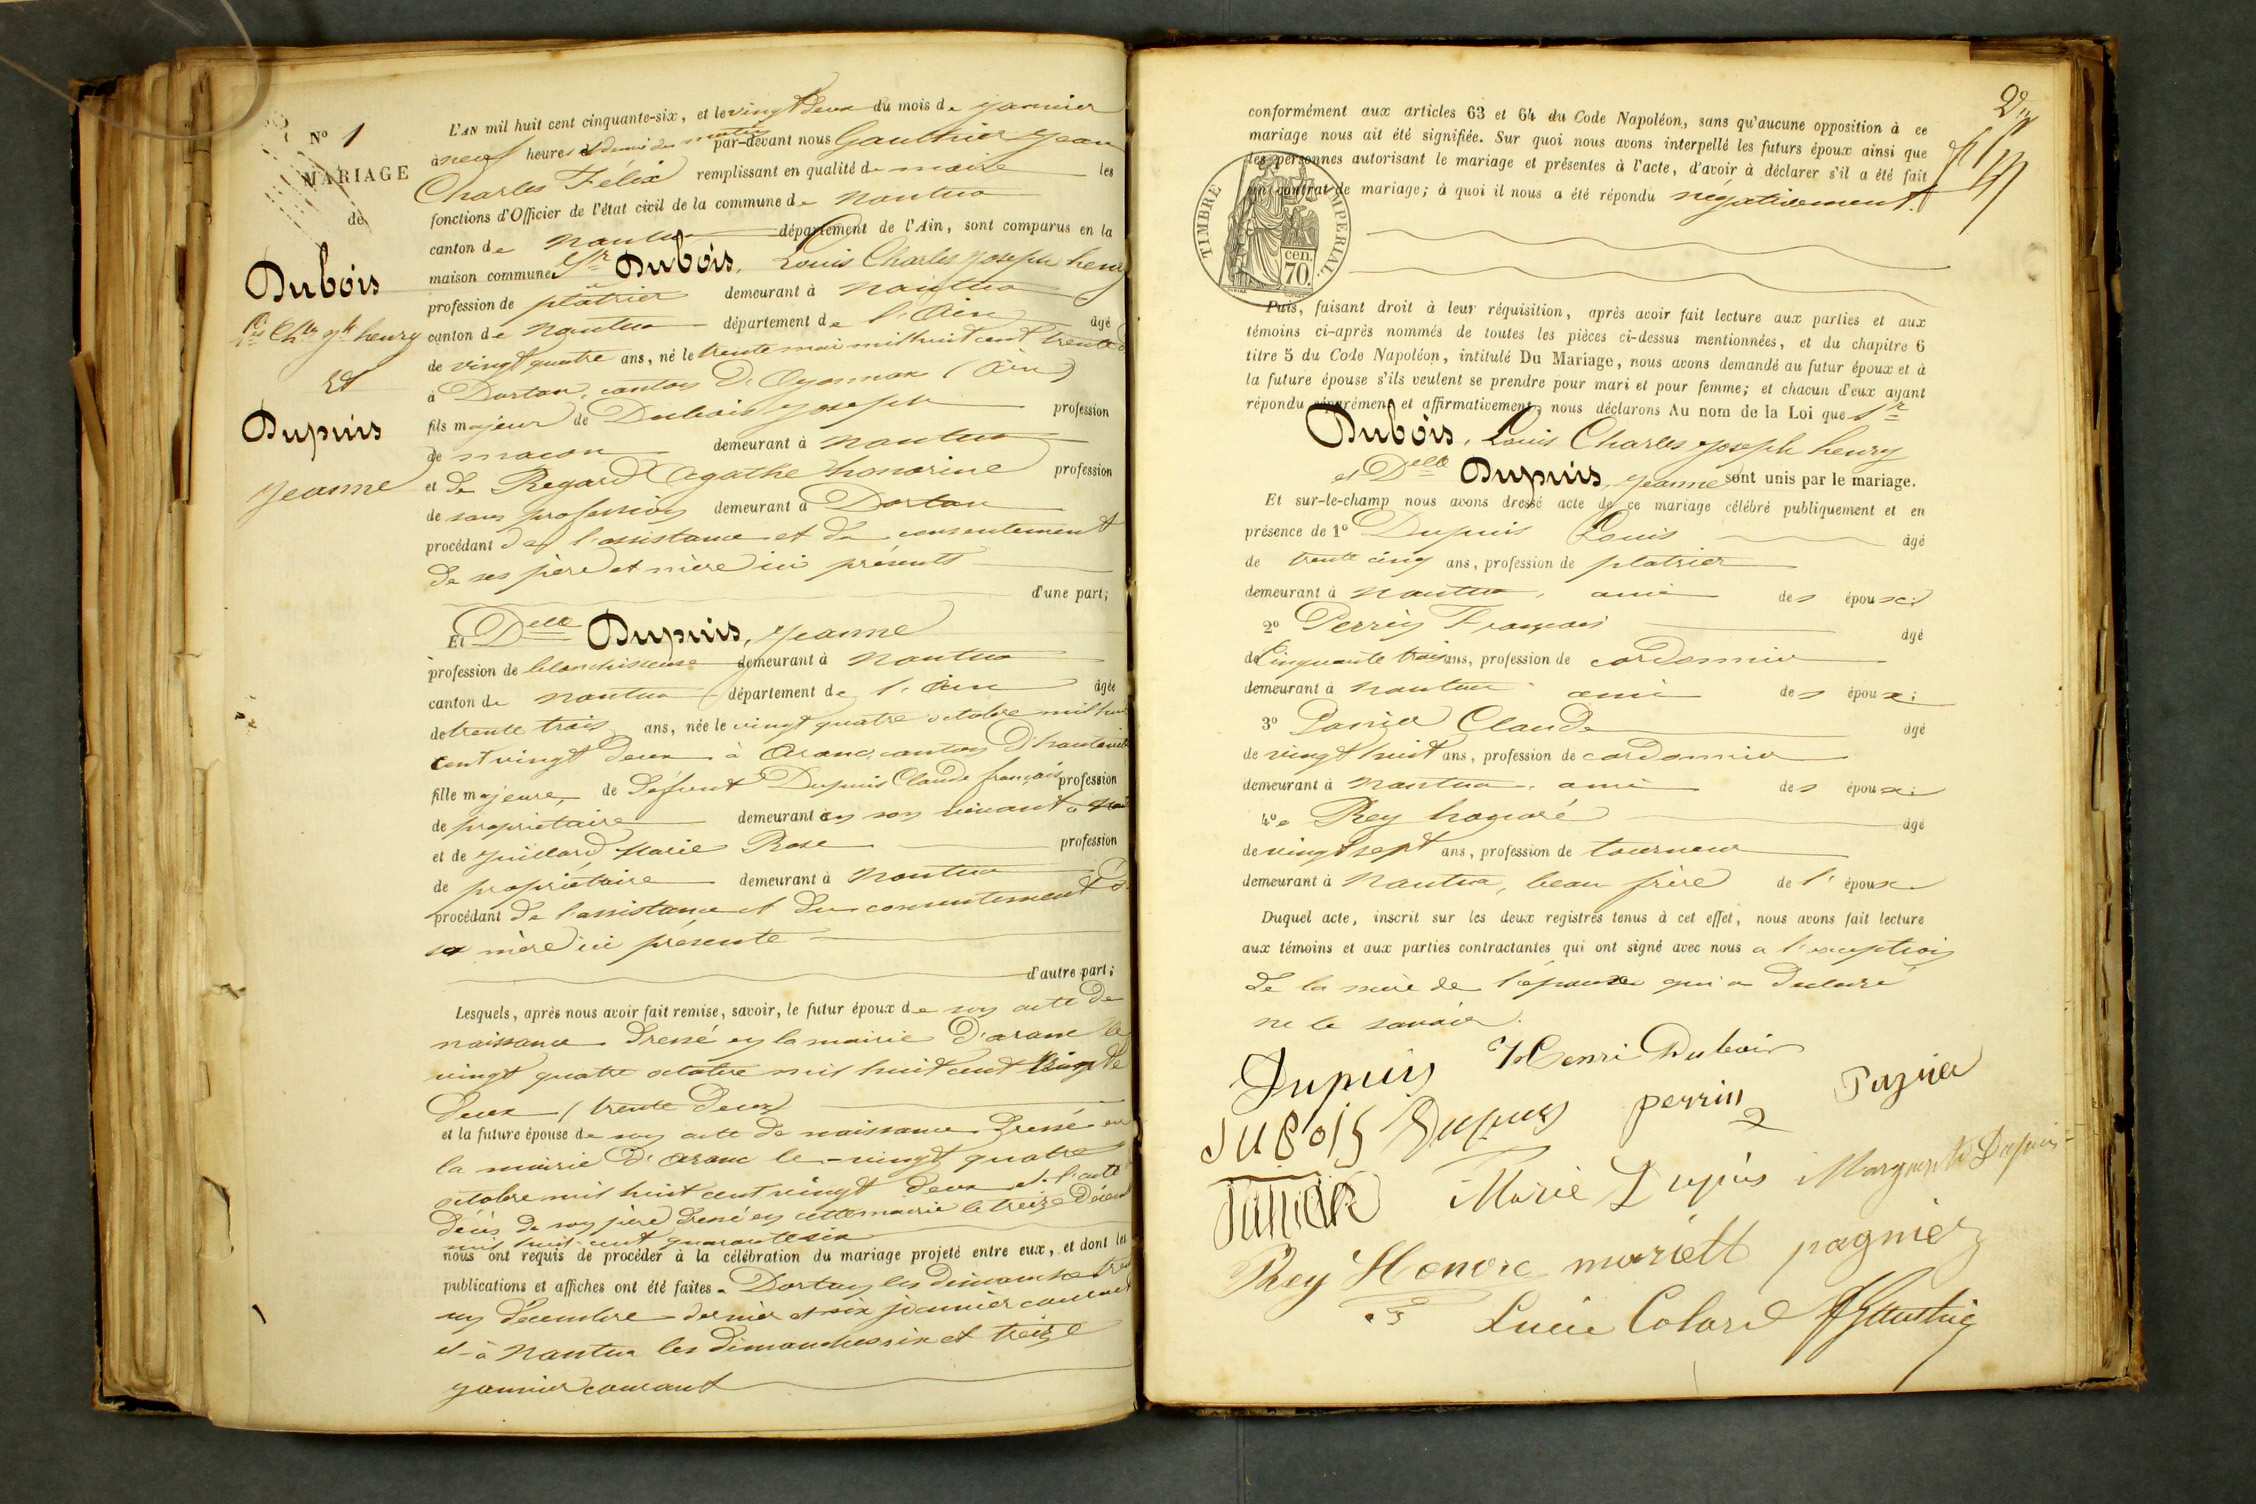 N° 1
MARIAGE
de
Dubois
Ls Chles Jh henry
Et
Dupuis
Jeanne
L'AN mil huit cent cinquante-six, et le vingt deux du mois de janvier
à neuf heures et demie du matin par-devant nous Gauthier Jean
Charles Félix remplissant en qualité de maire les
fonctions d'Officier de l'état civil de la commune de nantua
canton de nantua département de l'Ain, sont comparus en la
maison commune Sr Dubois, Louis Charles Joseph henry
profession de plâtrier demeurant à nantua
canton de nantua département de l'Ain âgé
de vingt quatre ans, né le trente mai mil huit cent trente
à Dortan, canton D'Oyonnax (Ain)
fils majeur de Dubois Joseph profession
de macon demeurant à nantua
et de Regard Agathe honorine profession
de sans profession demeurant à Dortan
procédant de l'assistance et du consentement
de ses père et mère ici présents
d'une part;
Et Delle Dupuis, Jeanne
profession de blanchisseuse demeurant à nantua
canton de nantua département de l'Ain âgée
de trente trois ans, née le vingt quatre octobre mil huit
cent vingt deux à Aranc, canton D'hauteville
fille majeure, de défunt Dupuis Claude françois profession
de propriétaire demeurant en son vivant à
et de Juillard Marie Rose profession
de propriétaire demeurant à nantua
procédant de l'assistance et du consentement de
sa mère ici présente
d'autre part;
Lesquels, après nous avoir fait remise, savoir, le futur époux de son acte de
naissance dressé en la mairie D'aranc le
vingt quatre octobre mil huit cent vingt
deux (trente deux)
et la future épouse de son acte de naissance dressé en
la mairie D'Aranc le vingt quatre
octobre mil huit cent vingt deux et l'acte
décès de son père dressé en cette mairie le treize
mil huit cent quarante six
nous ont requis de procéder à la célébration du mariage projeté entre eux, et dont les
publications et affiches ont été faites à Dortan les dimanches
un décembre dernier et six janvier courant
et à nantua les dimanches six et treize
janvier courant
2e
conformément aux articles 63 et 64 du Code Napoléon, sans qu'aucune opposition à ce
mariage nous ait été signifiée. Sur quoi nous avons interpellé les futurs époux ainsi que
les personnes autorisant le mariage et présentes à l'acte, d'avoir à déclarer s'il a été fait
un contrat de mariage; à quoi il nous a été répondu négativement.
TIMBRE IMPERIAL.
cen.
70.
Puis, faisant droit à leur réquisition, après avoir fait lecture aux parties et aux
témoins ci-après nommés de toutes les pièces ci-dessus mentionnées, et du chapitre 6
titre 5 du Code Napoléon, intitulé Du Mariage, nous avons demandé au futur époux et à
la future épouse s'ils veulent se prendre pour mari et pour femme; et chacun d'eux ayant
répondu séparément et affirmativement, nous déclarons Au nom de la Loi que Sr
Dubois, Louis Charles Joseph henry
et Delle Dupuis, Jeanne sont unis par le mariage.
Et sur-le-champ nous avons dressé acte de ce mariage célébré publiquement et en
présence de 1° Dupuis Louis âgé
de trente cinq ans, profession de platrier
demeurant à nantua, ami des époux;
2° Perrin François âgé
de Cinquante trois ans, profession de cordonnier
demeurant à nantua ami des époux;
3° Claude âgé
de vingt huit ans, profession de cordonnier
demeurant à nantua, ami des époux;
4° Rey honoré âgé
de vingt sept ans, profession de tourneur
demeurant à nantua, beau frère de l'époux
Duquel acte, inscrit sur les deux registres tenus à cet effet, nous avons fait lecture
aux témoins et aux parties contractantes qui ont signé avec nous a l'exception
de la mère de l'épouse qui a déclaré
ne le savoir.
Dupuis Henri Dubois
Dubois Dupuis perrin
Marie Dupuis Marguerite Dupuis
Rey Honore mariett pagnier
Lucie Colard Gauthier